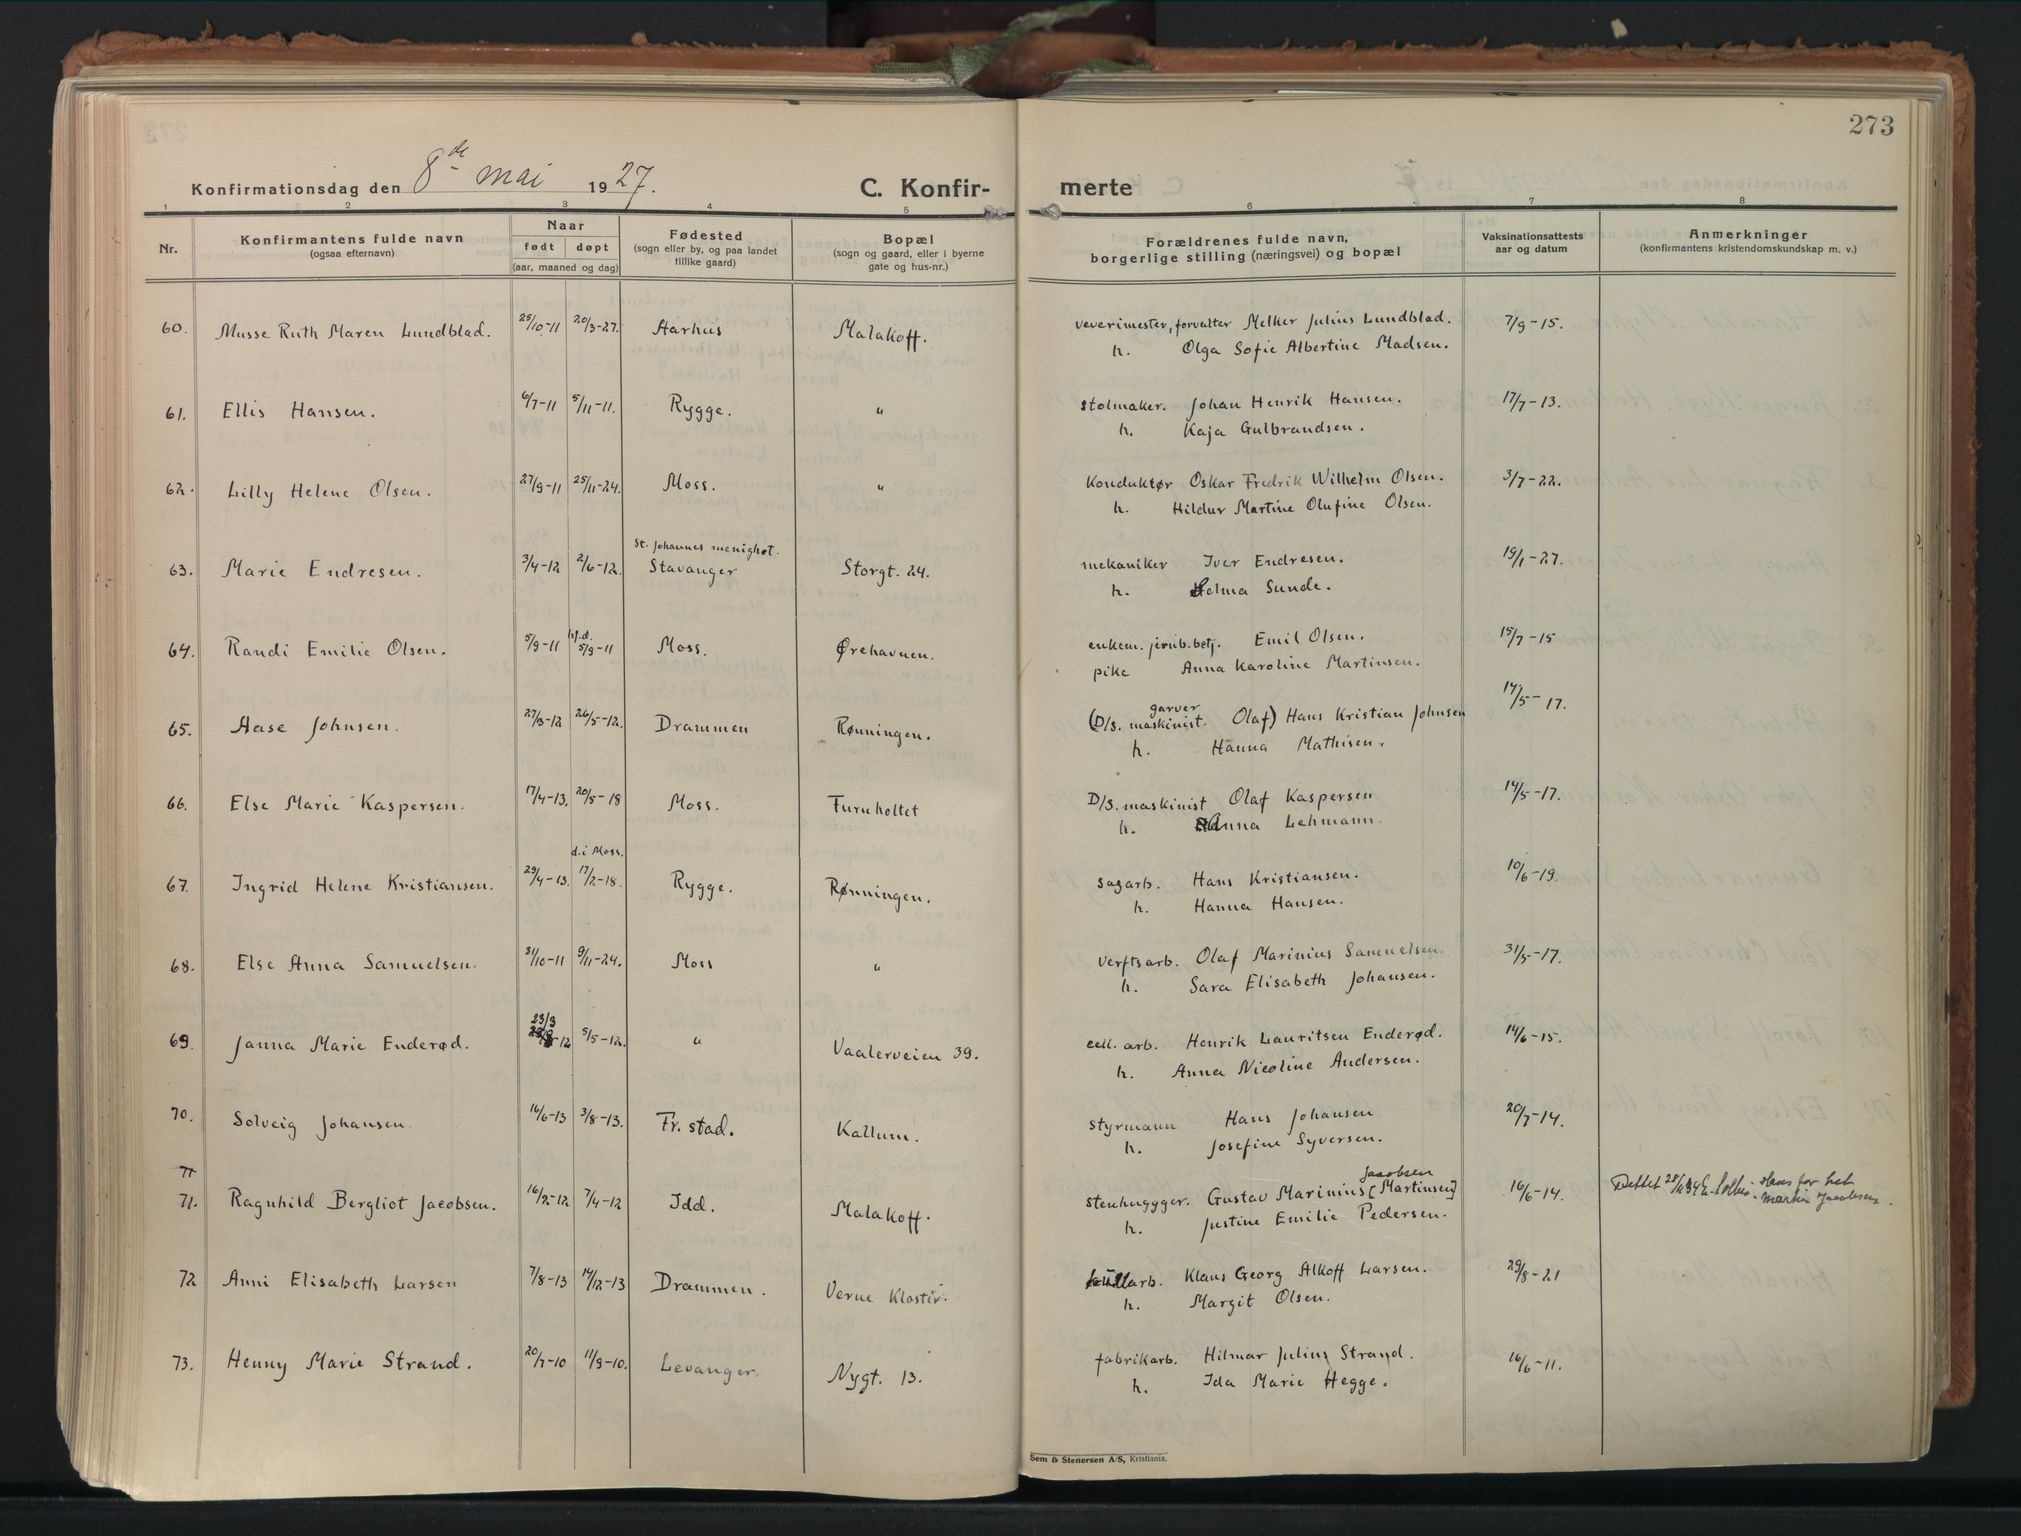 273
Konfirmationsdag den 8de mai 1927. C. Konfir- merte
1 2 3 4 5 6 7 8
Nr. Konfirmantens fulde navn (ogsaa efternavn) Naar født døpt (aar, maaned og dag) Fødested (sogn eller by, og paa landet tillike gaard) Bopæl (sogn og gaard, eller i byerne gate og hus-nr.) Forældrenes fulde navn, borgerlige stilling (næringsvei) og bopæl Vaksinationsattests aar og datum Anmerkninger (konfirmantens kristendomskundskap m. v.)
60. Musse Ruth Maren Lundblad. 25/10-11 20/3-27. Aarhus Malakoff. veverimester, forvalter Melker Julius Lundblad. 7/9-15.
h. Olga Sofie Albertine Madsen.
61. Ellis Hansen. 6/7-11 5/11-11. Rygge. " stolmaker. Johan Henrik Hansen. 17/7-13.
h. Kaja Gulbrandsen.
62. Lilly Helene Olsen. 27/9-11 25/11-24. Moss. " Konduktør Oskar Fredrik Wilhelm Olsen. 3/7-22.
h. Hildur Martine Olufine Olsen.
St. Johannes menighet.
63. Marie Endresen. 3/4-12 2/6-12. Stavanger Storgt. 24. mekaniker Iver Endresen. 19/1-27.
h. Selma Sunde.
hj.d.
64. Randi Emilie Olsen. 5/9-11 5/9-11 Moss. Ørehavnen. enkem. jernb.betj. Emil Olsen. 15/7-15
pike Anna Karoline Martinsen.
garver
65. Aase Johnsen. 27/3-12 26/5-12. Drammen Rønningen. (D/S. maskinist. Olaf) Hans Kristian Johnsen 14/5-17.
h. Hanna Mathisen.
66. Else Marie Kaspersen. 17/4-13. 20/5-18 Moss. Furuholtet D/S. maskinist Olaf Kaspersen 14/5-17.
h. Anna Lehmann.
d. i Moss.
67. Ingrid Helene Kristiansen. 29/4-13. 17/2-18. Rygge. Rønningen. sagarb. Hans Kristiansen. 10/6-19.
h. Hanna Hansen.
68. Else Anna Samuelsen. 31/10-11 9/11-24. Moss " verftsarb. Olaf Marinius Samuelsen. 31/5-17.
h. Sara Elisabeth Johansen.
23/3
69. Janna Marie Enderød. -12 5/5-12. " Vaalerveien 39. cell. arb. Henrik Lauritsen Enderød. 14/6-15.
h. Anna Nicoline Andersen.
70. Solveig Johansen 16/6-13 3/8-13. Fr. stad. Kallum. styrmann Hans Johansen 20/7-14.
h. Josefine Syversen.
71 Jacobsen
71. Ragnhild Bergliot Jacobsen. 16/2-12 7/4-12 Idd. Malakoff. stenhuggger. Gustav Marinius [Martinsen] 16/6-14. Dettet 28/
h. Justine Emilie Pedersen.
72 Anni Elisabeth Larsen 7/8-13 14/12-13 Drammen. Verne Kloster. arb. Klaus Georg Alkoff Larsen. 29/8-21
h. Margit Olsen.
73. Henny Marie Strand. 20/7-10 11/9-10. Levanger. Nygt. 13. fabrikarb. Hilmar Julius Strand. 16/6-11.
h. Ida Marie Hegge.
Sem & Stenersen A/S, Kristiania.